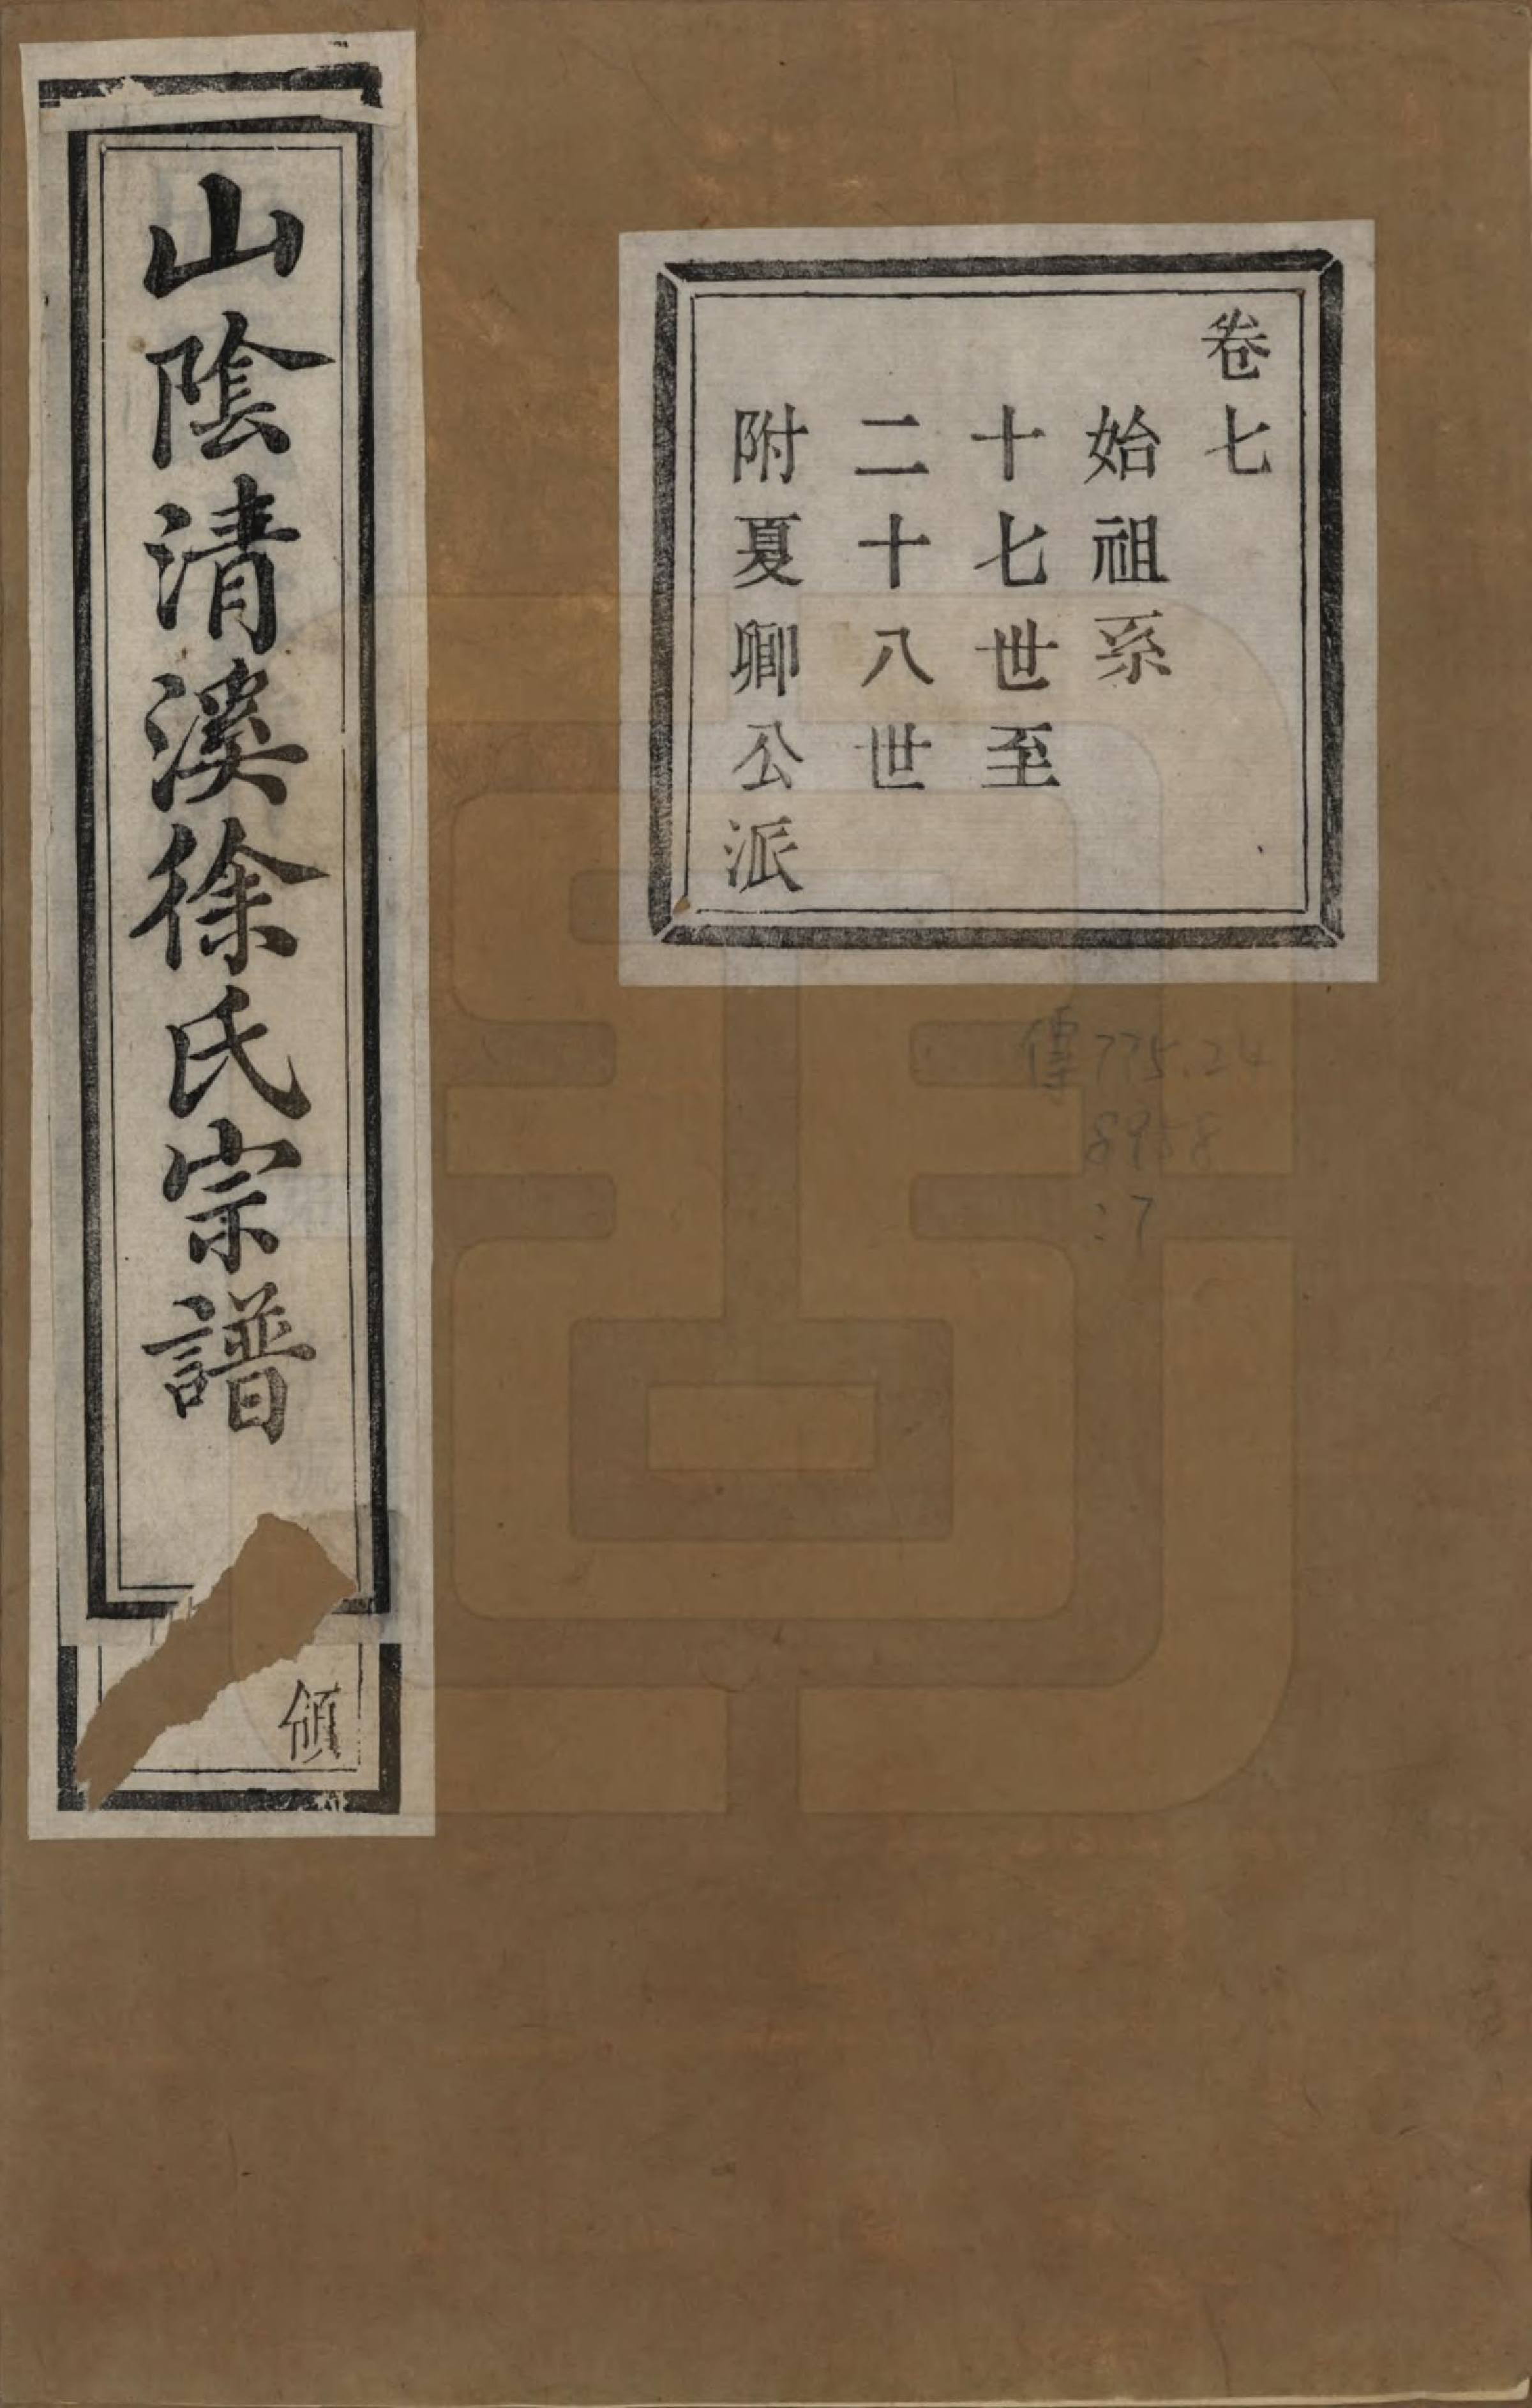 卷七
始祖系
十七世至
二十八世
附夏卿公派
山陰清溪徐氏宗譜
傳775.24
8958
:7